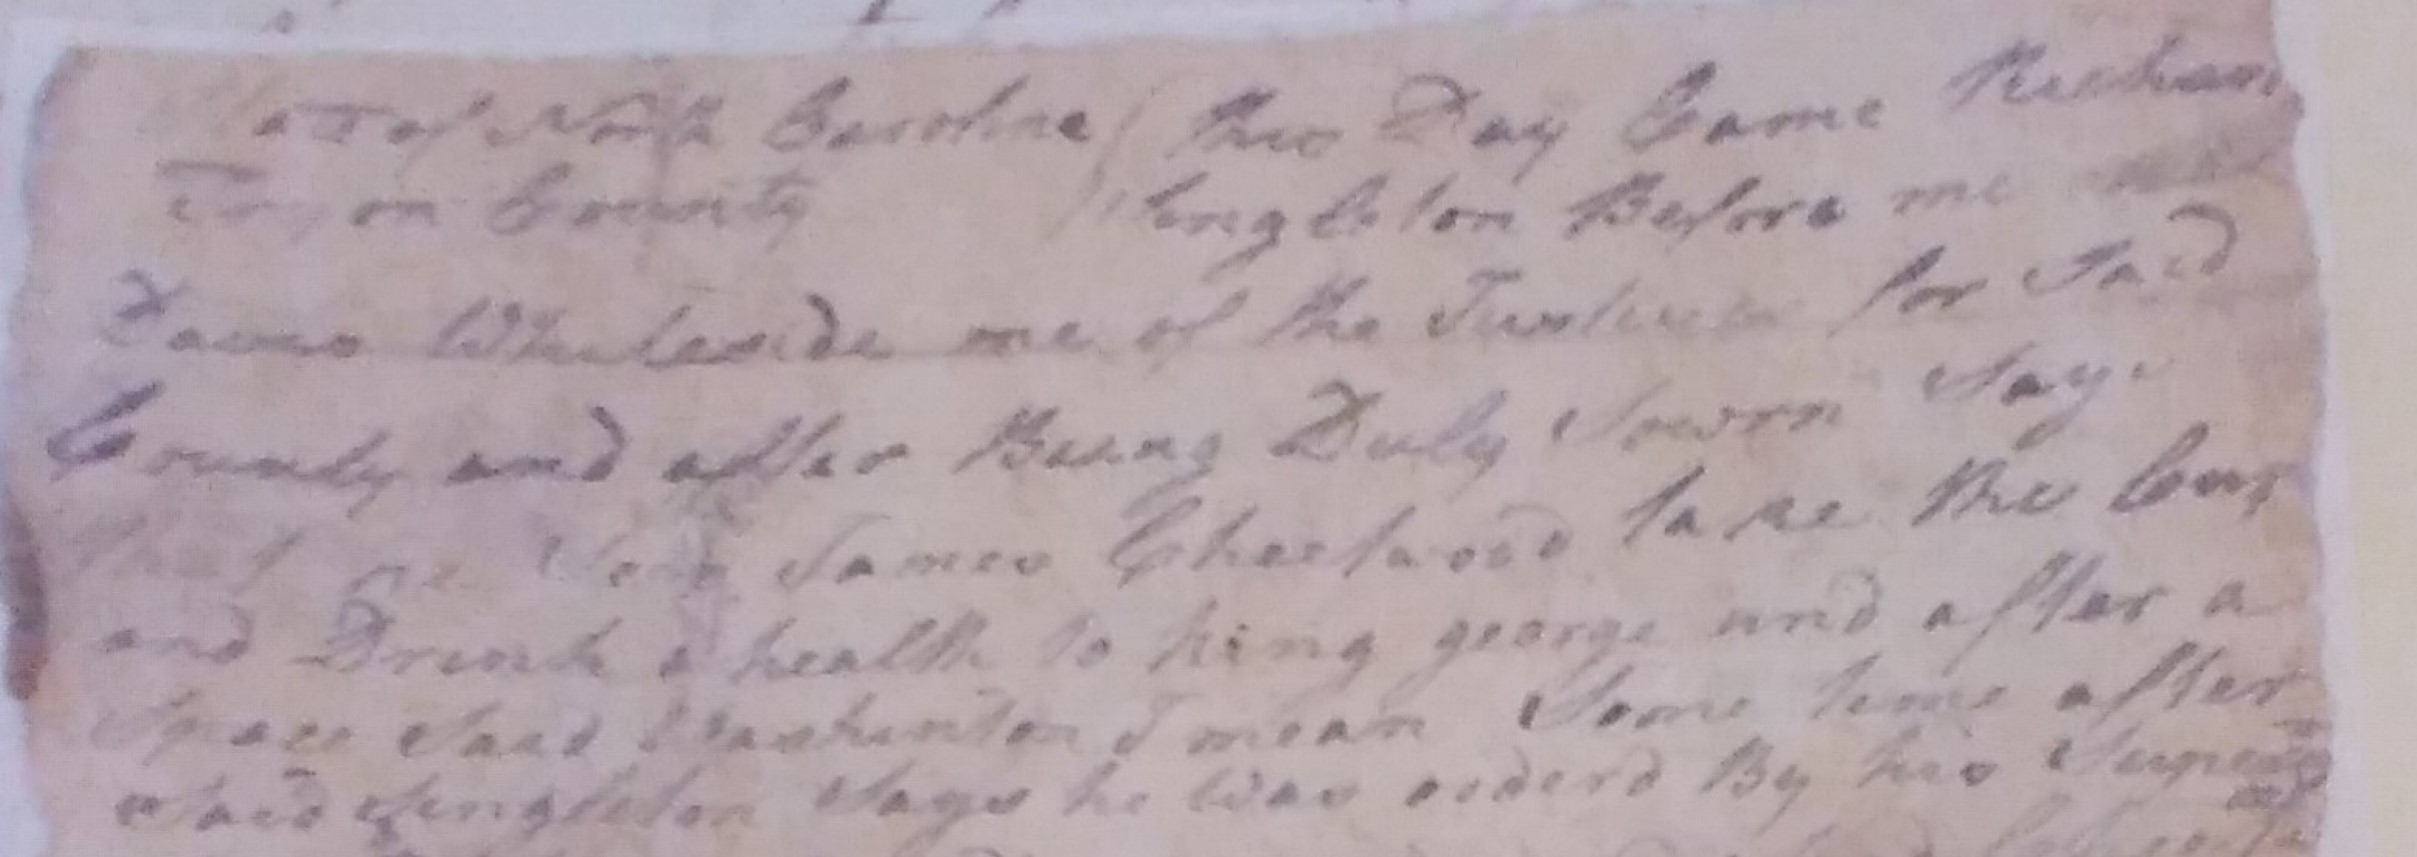 of North Carolina this Day Came Richard
Tryon County Singleton Before me
James Whiteside one of the Justices for Said
County and after Being Duly Sworn Says
that he Said James Cheetwood take the Cup
and Drink a health to king george and after a
Space Said Washinton I mean Some time after
Said Singleton Says he was orderd By his